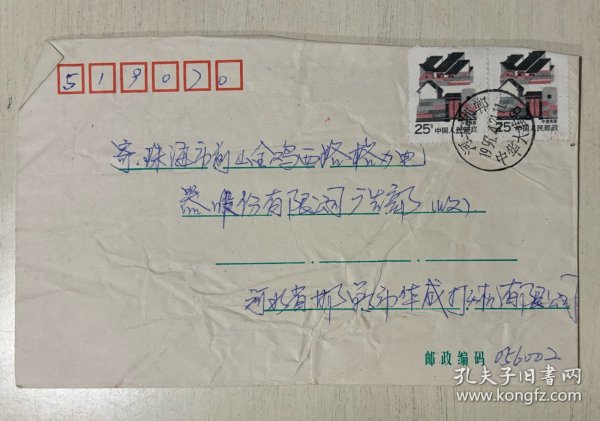 519070
25分 中国人民邮政
25分 中国人民邮政
河北邯郸
中华大街
寄:珠海市前山金鸡西路格力电
器股份有限公司广告部(收)
河北省邯郸市华成打火机有限公司
邮政编码 056002
孔夫子旧书网
www.kongfz.com